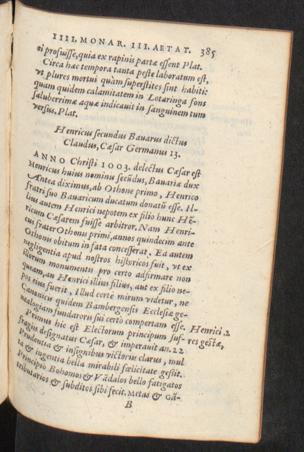 IIII. MONAR. III. AETAT. 385
ei profuisse, quia ex rapinis parta essent Plat.
Circa hæc tempora tanta peste laboratum est,
vt plures mortui quàm superstites sint habiti:
quam quidem calamitatem in Lotaringa fons
saluberrimæ aquæ indicauit in sanguinem tum
versus. Plat.
Henricus secundus Bauarus dictus
Claudus, Cæsar Germanus 13.
ANNO Christi 1003. delectus Cæsar est
Henricus huius nominis secũdus, Bauariæ dux
Antea diximus, ab Othone primo, Henrico
fratri suo Bauaricum ducatum donatũ esse. Il-
lius autem Henrici nepotem ex filio hunc Hẽ-
ricum Cæsarem fuisse arbitror. Nam Henri-
cus frater Othonis primi, annos quindecim ante
Othonis obitum in fata concesserat. Ea autem
negligentia apud nostros historicos fuit, vt ex
illorum monumentis pro certo adfirmare non
queam, an Henrici illius filius, aut ex filio ne-
pos eius fuerit. Illud certè mirum videtur, ne
Canonicis quidem Bambergensis Ecclesiæ ge-
nealogiam fundatoris sui certò compertam esse. Henrici 2
Primus hic est Electorum principum suf- res gestæ,
fragiis designatus Cæsar, & imperauit an. 22
prudentia & insignibus victoriis clarus, mul
ta & ingentia bella mirabili fælicitate gessit.
Principio Bohomos & Vãdalos bello fatigatos
tributarios & subditos sibi fecit. Metas & Gã-
B